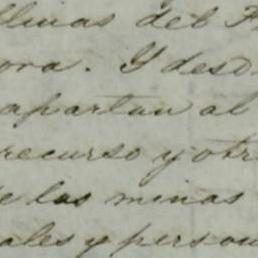 llinas del P
ora. Y desd
apartan al
recurso y otr
e las minas
ales y person